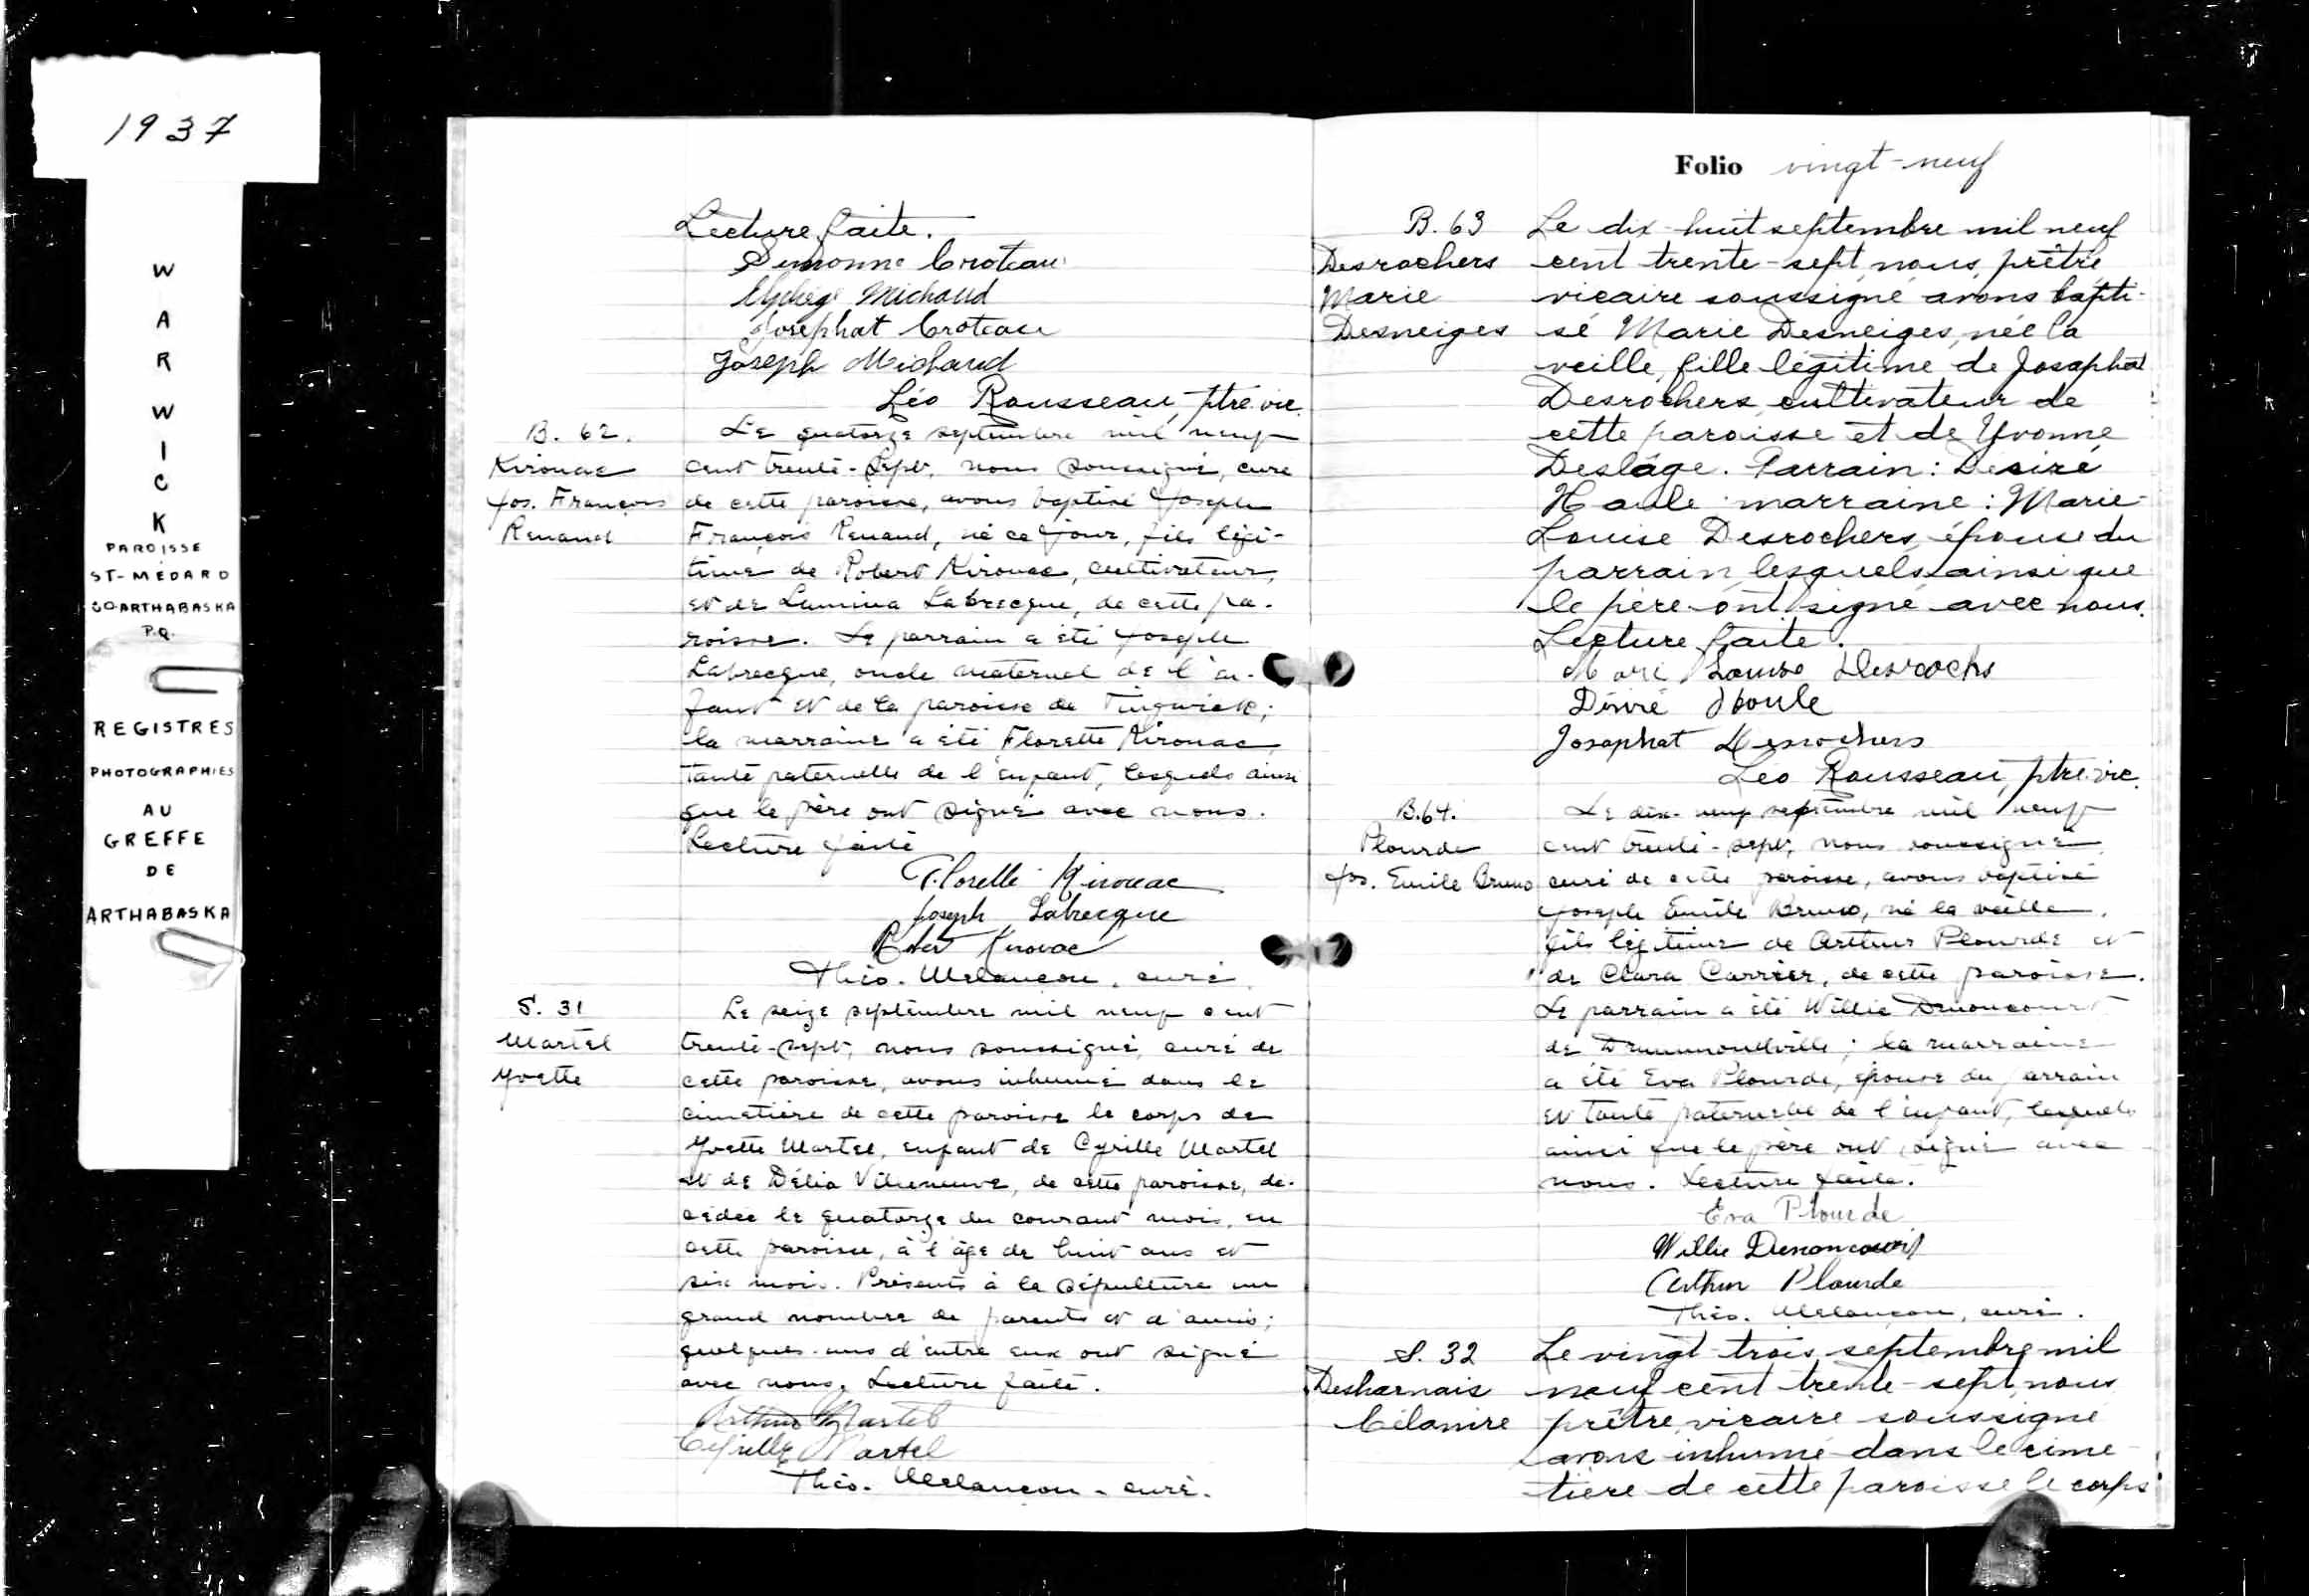 1937
W
A
R
W
I
C
K
PAROISSE
ST-MÉDARD
CO-ARTHABASKA
P.Q.
REGISTRES
PHOTOGRAPHIES
AU
GREFFE
DE
ARTHABASKA
Lecture faite.
Simonne Croteau
Michaud
Josephat Croteau
Joseph Michaud
Léo Rousseau, ptre. vic.
B. 62.
Kirouac
Jos. François
Renaud
Le quatorze septembre mil neuf
cent trente-sept, nous soussigné, curé
de cette paroisse, avons baptisé Joseph
François Renaud, né ce jour, fils légi-
time de Robert Kirouac, cultivateur,
et de Lumina Labrecque, de cette pa-
roisse. Le parrain a été Joseph
Labrecque, oncle maternel de l'en-
fant et de la paroisse de Tingwick;
la marraine a été Florette Kirouac,
tante paternelle de l'enfant, lesquels ainsi
que le père ont signé avec nous.
Lecture faite
Florette Kirouac
Joseph Labrecque
Robert Kirouac
Théo. Melançon, curé.
S. 31
Martel
Yvette
Le seize septembre mil neuf cent
trente-sept, nous soussigné, curé de
cette paroisse, avons inhumé dans le
cimetière de cette paroisse le corps de
Yvette Martel, enfant de Cyrille Martel
et de Délia Villeneuve, de cette paroisse, dé-
cédée le quatorze du courant mois, en
cette paroisse, à l'âge de huit ans et
six mois. Présents à la sépulture un
grand nombre de parents et d'amis;
quelques-uns d'entre eux ont signé
avec nous. Lecture faite.
Arthur Martel
Cyrille Martel
Théo. Melançon, curé.
Folio vingt-neuf
B. 63
Desrochers
Marie
Desneiges
Le dix-huit septembre mil neuf
cent trente-sept, nous, prêtre
vicaire soussigné avons bapti-
sé Marie Desneiges, née la
veille, fille légitime de Josaphat
Desrochers, cultivateur de
cette paroisse et de Yvonne
Deslâge. Parrain: Désiré
Houle marraine: Marie-
Louise Desrochers, épouse du
parrain, lesquels ainsi que
le père ont signé avec nous.
Lecture faite.
Mari Louise Desrochs
Désiré Houle
Josaphat Desrochers
Léo Rousseau, ptre. vic.
B.64.
Plourde
Jos. Emile Bruno
Le dix-neuf septembre mil neuf
cent trente-sept, nous soussigné,
curé de cette paroisse, avons baptisé
Joseph Emile Bruno, né la veille,
fils légitime de Arthur Plourde et
de Clara Carrier, de cette paroisse.
Le parrain a été Willie Denoncourt
de Drummondville; la marraine
a été Eva Plourde, épouse du parrain
et tante paternelle de l'enfant, lesquels
ainsi que le père ont signé avec
nous. Lecture faite.
Eva Plourde
Willie Denoncourt
Arthur Plourde
Théo. Melançon, curé.
S. 32
Desharnais
Célanire
Le vingt-trois septembre mil
neuf cent trente-sept, nous
prêtre vicaire soussigné
avons inhumé dans le cime-
tière de cette paroisse le corps